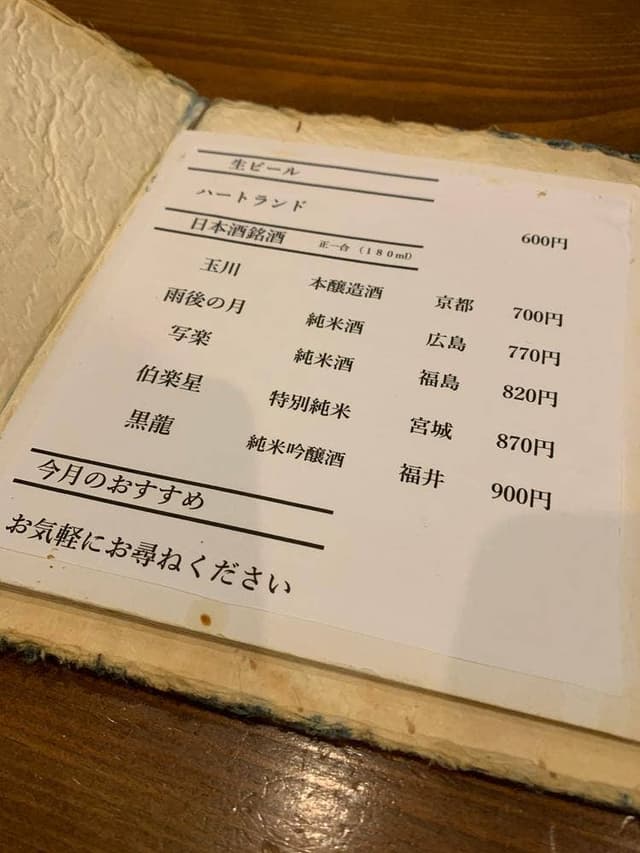 生ビール
ハートランド 600円
日本酒銘酒 正一合 (180ml)
玉川 本醸造酒 京都 700円
雨後の月 純米酒 広島 770円
写楽 純米酒 福島 820円
伯楽星 特別純米 宮城 870円
黒龍 純米吟醸酒 福井 900円
今月のおすすめ
お気軽にお尋ねください